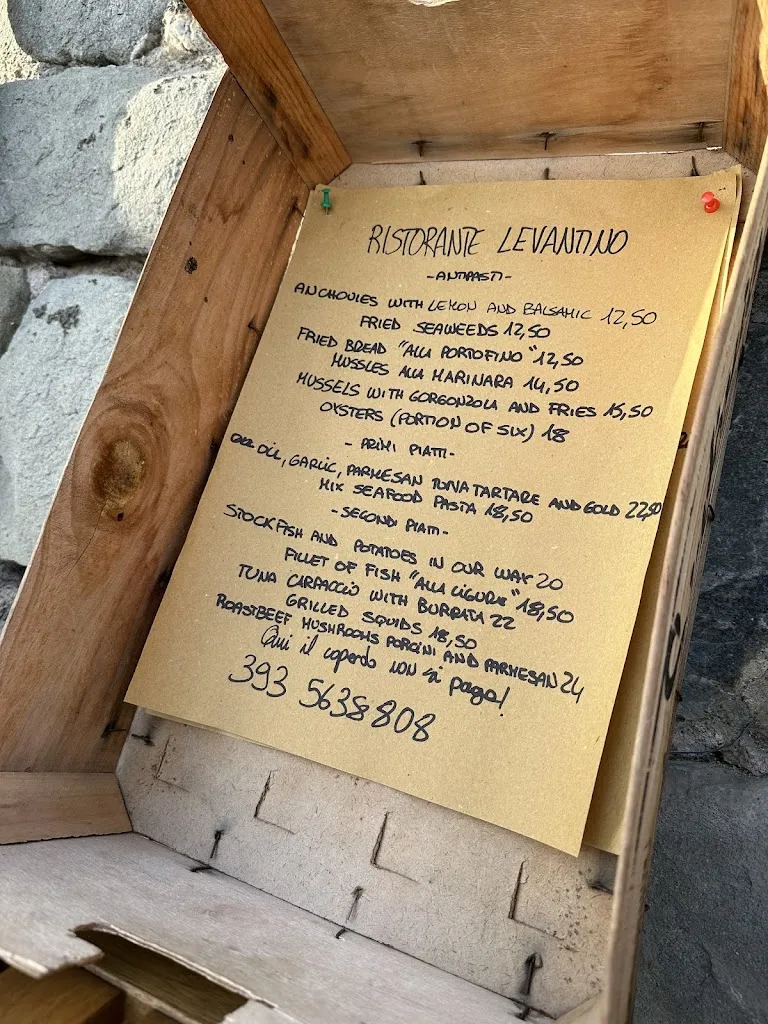 RISTORANTE LEVANTINO
-ANTIPASTI-
ANCHOVIES WITH LEMON AND BALSAMIC 12,50
FRIED SEAWEEDS 12,50
FRIED BREAD "ALLA PORTOFINO" 12,50
MUSSLES ALLA MARINARA 14,50
MUSSELS WITH GORGONZOLA AND FRIES 15,50
OYSTERS (PORTION OF SIX) 18
- PRIMI PIATTI-
OIL, GARLIC, PARMESAN TUNA TARTARE AND GOLD 22,50
MIX SEAFOOD PASTA 18,50
-SECONDI PIATTI-
STOCKFISH AND POTATOES IN OUR WAY 20
FILLET OF FISH "ALLA LIGURE" 18,50
TUNA CARPACCIO WITH BURRATA 22
GRILLED SQUIDS 18,50
ROASTBEEF MUSHROOMS PORCINI AND PARMESAN 24
Qui il coperto non si paga!
393 5638808